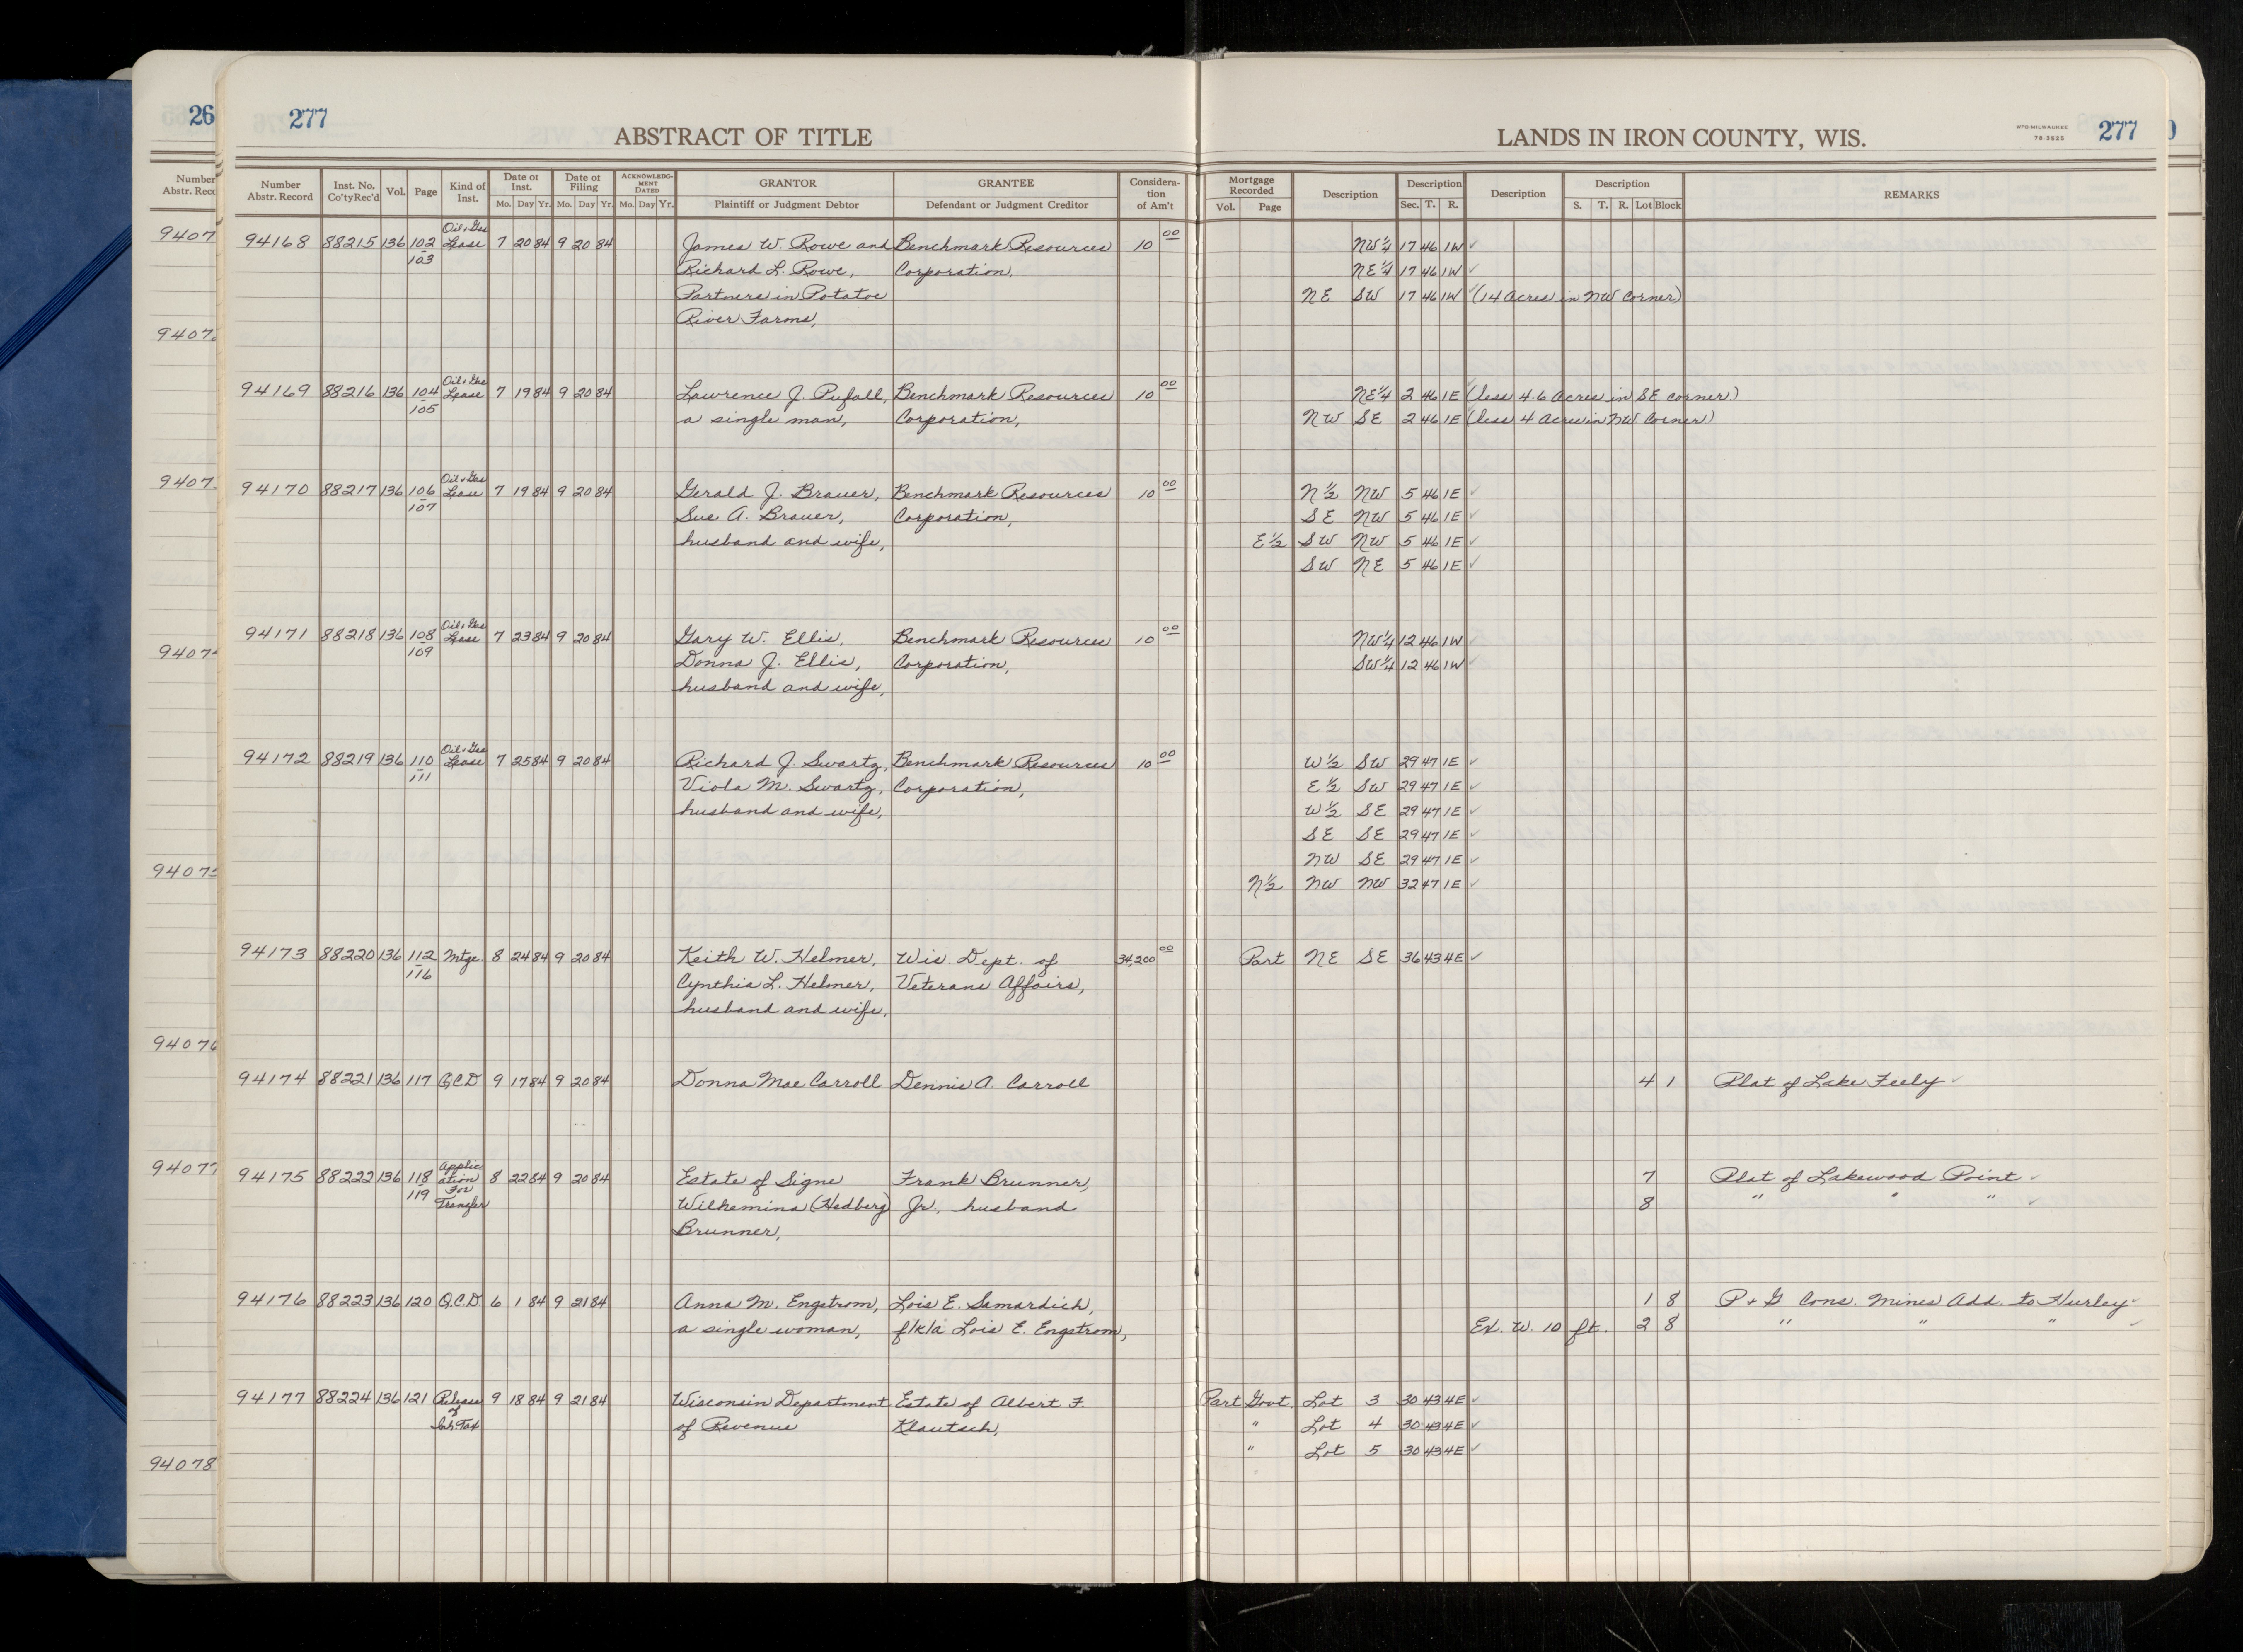 26
277
ABSTRACT OF TITLE
LANDS IN IRON COUNTY, WIS.
MPB-MILWAUKEE
78-3525
277
Number
Abstr. Reco
Number
Abstr. Record
Inst. No.
Co'ty Rec'd
Vol.
Page
Kind of
Inst.
Date of
Inst.
Mo. Day Yr.
Date of
Filing
Mo. Day Yr.
ACKNOWLEDG-
MENT
DATED
Mo. Day Yr.
GRANTOR
Plaintiff or Judgment Debtor
GRANTEE
Defendant or Judgment Creditor
Considera-
tion
of Am't
Mortgage
Recorded
Vol. Page
Description
Description
Sec. T. R.
Description
Description
S. T. R. Lot Block
REMARKS
Oil & Gas
94168 88215 136 102 Lease 7 20 84 9 20 84 James W. Rowe and Benchmark Resources 10 00 NW 1/4 17 46 1W ✓
103 Richard L. Rowe, Corporation, NE 1/4 17 46 1W ✓
Partners in Potatoe NE SW 17 46 1W ✓ (14 Acres in NW Corner)
River Farms,
Oil & Gas
94169 88216 136 104 Lease 7 19 84 9 20 84 Lawrence J. Pufall, Benchmark Resources 10 00 NE 1/4 2 46 1E ✓ (less 4.6 Acres in SE corner)
105 a single man, Corporation, NW SE 2 46 1E ✓ (less 4 Acres in NW Corner)
Oil & Gas
94170 88217 136 106 Lease 7 19 84 9 20 84 Gerald J. Brauer, Benchmark Resources 10 00 N 1/2 NW 5 46 1E ✓
107 Sue A. Brauer, Corporation, SE NW 5 46 1E ✓
husband and wife, E 1/2 SW NW 5 46 1E ✓
SW NE 5 46 1E ✓
Oil & Gas
94171 88218 136 108 Lease 7 23 84 9 20 84 Gary W. Ellis, Benchmark Resources 10 00 NW 1/4 12 46 1W ✓
109 Donna J. Ellis, Corporation, SW 1/4 12 46 1W ✓
husband and wife,
Oil & Gas
94172 88219 136 110 Lease 7 25 84 9 20 84 Richard J. Swartz, Benchmark Resources 10 00 W 1/2 SW 29 47 1E ✓
111 Viola M. Swartz, Corporation, E 1/2 SW 29 47 1E ✓
husband and wife, W 1/2 SE 29 47 1E ✓
SE SE 29 47 1E ✓
NW SE 29 47 1E ✓
N 1/2 NW NW 32 47 1E ✓
94173 88220 136 112 Mtge. 8 24 84 9 20 84 Keith W. Helmer, Wis Dept. of 34,200 00 Part NE SE 36 43 4E ✓
116 Cynthia L. Helmer, Veterans Affairs,
husband and wife,
94174 88221 136 117 Q.C.D 9 17 84 9 20 84 Donna Mae Carroll Dennis A. Carroll 4 1 Plat of Lake Feely ✓
Applic
94175 88222 136 118 ation 8 22 84 9 20 84 Estate of Signe Frank Brunner, 7 Plat of Lakewood Point ✓
119 For
Transfer Wilhemina (Hedberg) Jr., husband 8 " " " ✓
Brunner,
94176 88223 136 120 Q.C.D. 6 1 84 9 21 84 Anna M. Engstrom, Lois E. Samardich, 1 8 P & G Cons. Mines Add. to Hurley ✓
a single woman, f/k/a Lois E. Engstrom, Ex. W. 10 ft. 2 8 " " " ✓
94177 88224 136 121 Release 9 18 84 9 21 84 Wisconsin Department Estate of Albert F. Part Govt. Lot 3 30 43 4E ✓
of
Inh. Tax of Revenue Klautsch, " Lot 4 30 43 4E ✓
" Lot 5 30 43 4E ✓
9407
9407
9407
9407
9407
94076
94077
94078